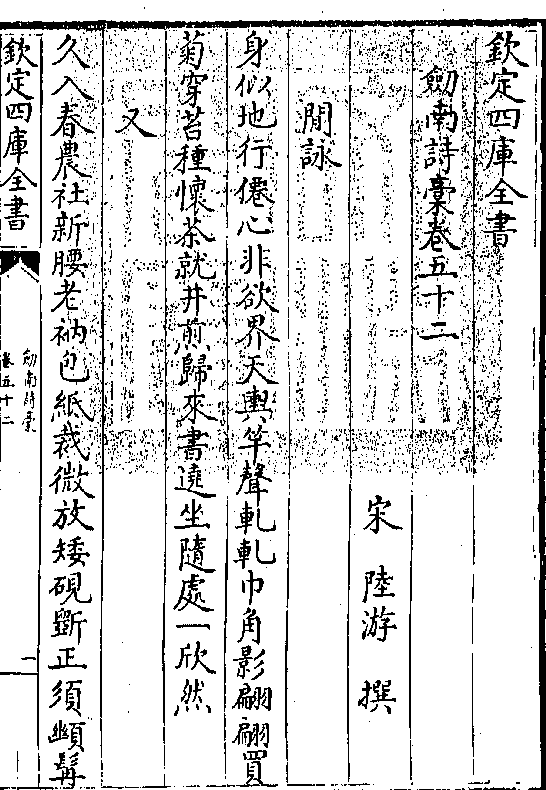 欽定四庫全書
劒南詩稾卷五十二
宋 陸游 撰
閒詠
身似地行僊心非欲界天輿竿聲軋軋巾角影翩翩買
菊穿苔種懷茶就井煎歸來書遶坐隨處一欣然
又
久入春農社新腰老衲包紙裁微放矮硯斵正須㘭髩
欽定四庫全書
劒南詩稾
卷五十二
一